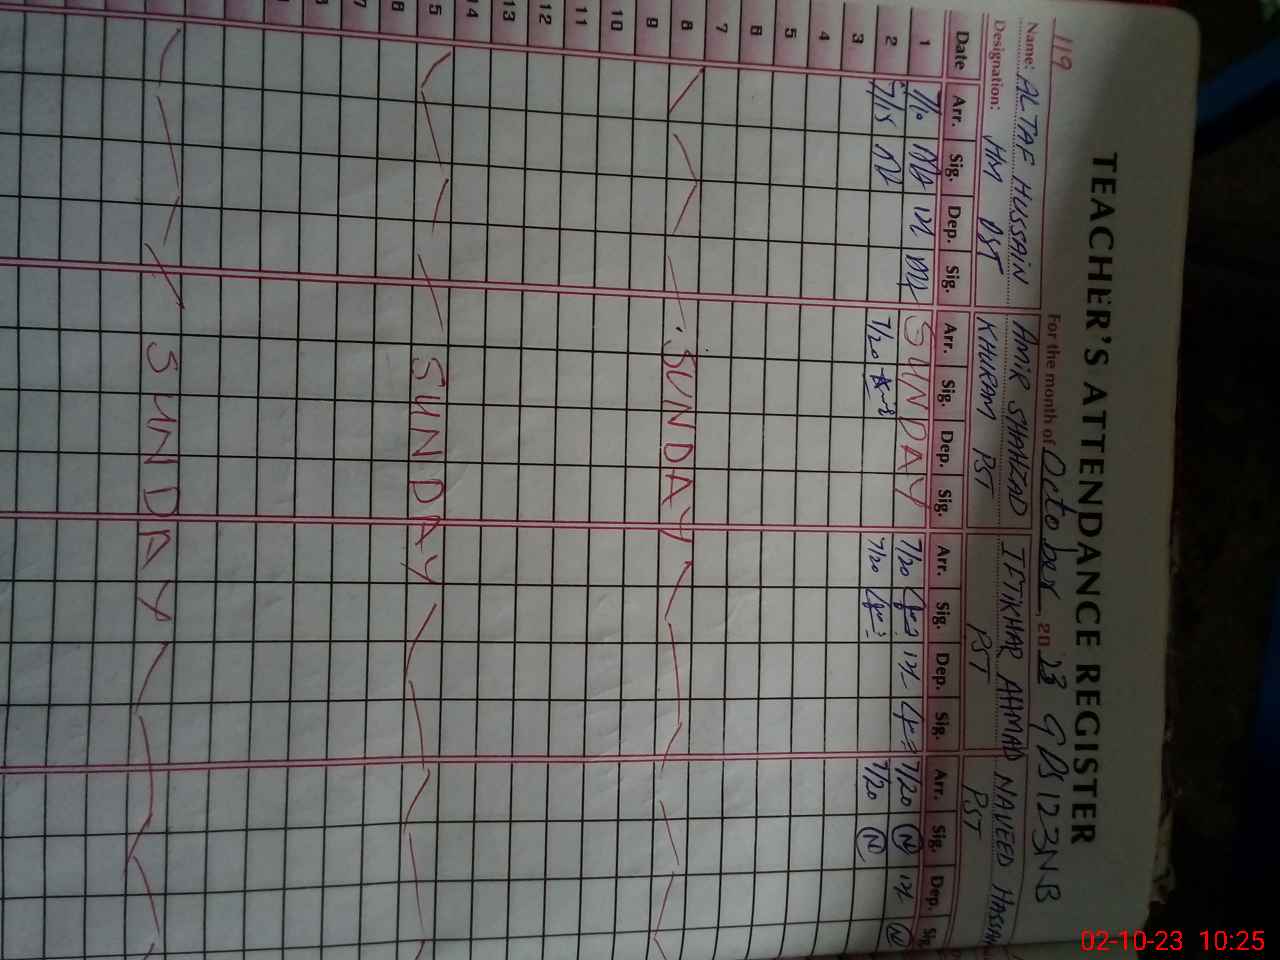 119
TEACHER'S ATTENDANCE REGISTER
For the month of October, 2023 GPS 123NB
Name: ALTAF HUSSAIN AMIR SHAHZAD IFTIKHAR AHMAD NAVEED HASSAN
Designation: HM PST KHURAM PST PST PST
Date Arr. Sig. Dep. Sig. Arr. Sig. Dep. Sig. Arr. Sig. Dep. Sig. Arr. Sig. Dep. Sig.
1 7/10 SUNDAY 7/20 7/20 N N
2 7/15 7/20 7/20 7/20 N
3
4
5
6
7
8 SUNDAY
9
10
11
12
13
14
15 SUNDAY
SUNDAY
02-10-23 10:25